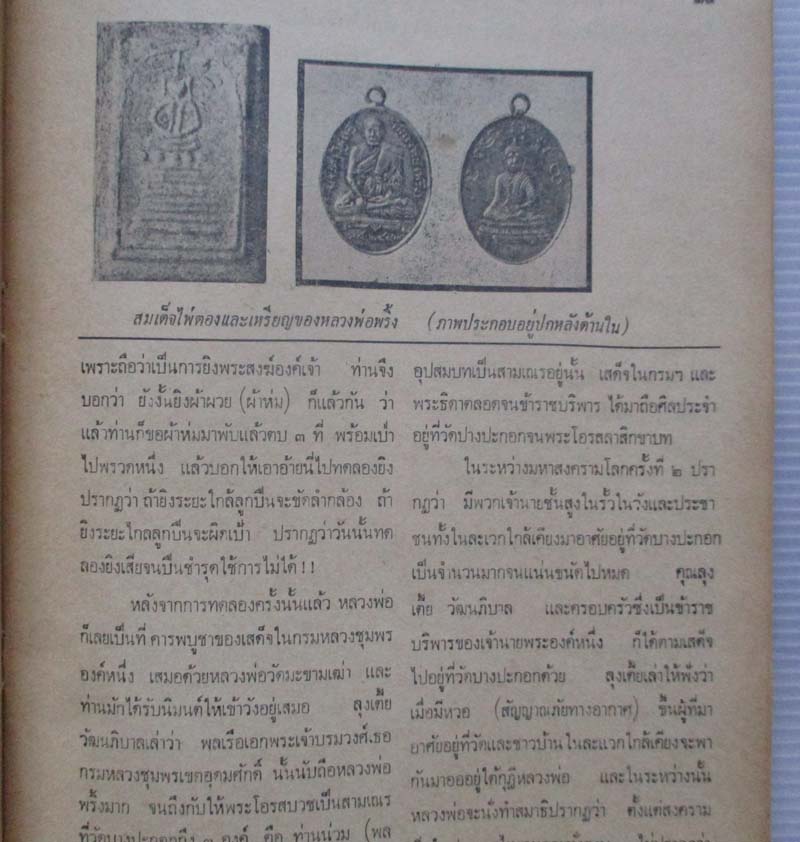 สมเด็จไพ่ตองและเหรียญของหลวงพ่อพริ้ง (ภาพประกอบอยู่ปกหลังด้านใน)
เพราะถือว่าเป็นการยิงพระสงฆ์องค์เจ้า ท่านจึง
บอกว่า ยังงั้นยิงผ้าผวย (ผ้าห่ม) ก็แล้วกัน ว่า
แล้วท่านก็ขอผ้าห่มมาพับแล้วตบ ๓ ที่ พร้อมเป่า
ไปพรวดหนึ่ง แล้วบอกให้เอาอ้ายนี่ไปทดลองยิง
ปรากฏว่า ถ้ายิงระยะใกล้ลูกปืนจะขัดลำกล้อง ถ้า
ยิงระยะไกลลูกปืนจะผิดเป้า ปรากฏว่าวันนั้นทด
ลองยิงเสียจนปืนชำรุดใช้การไม่ได้!!
หลังจากการทดลองครั้งนั้นแล้ว หลวงพ่อ
ก็เลยเป็นที่ คารพบูชาของเสด็จในกรมหลวงชุมพร
องค์หนึ่ง เสมอด้วยหลวงพ่อวัดมะขามเฒ่า และ
ท่านมักได้รับนิมนต์ให้เข้าวังอยู่เสมอ ลุงเตี้ย
วัฒนภิบาลเล่าว่า พลเรือเอกพระเจ้าบรมวงศ์เธอ
กรมหลวงชุมพรเขตอุดมศักดิ์ นั้นนับถือหลวงพ่อ
พริ้งมาก จนถึงกับให้พระโอรสบวชเป็นสามเณร
ที่วัดบางปะกอกถึง ๓ องค์ คือ ท่านน่วม (พล
อุปสมบทเป็นสามเณรอยู่นั้น เสด็จในกรมฯ และ
พระธิดาตลอดจนข้าราชบริพาร ได้มาถือศีลประจำ
อยู่ที่วัดบางปะกอกจนพระโอรสลาสิกขาบท
ในระหว่างมหาสงครามโลกครั้งที่ ๒ ปรา
กฏว่า มีพวกเจ้านายชั้นสูงในรั้วในวังและประชา
ชนทั้งในละเวกใกล้เคียงมาอาศัยอยู่ที่วัดบางปะกอก
เป็นจำนวนมากจนแน่นขนัดไปหมด คุณลุง
เตี้ย วัฒนภิบาล และครอบครัวซึ่งเป็นข้าราช
บริพารของเจ้านายพระองค์หนึ่ง ก็ได้ตามเสด็จ
ไปอยู่ที่วัดบางปะกอกด้วย ลุงเตี้ยเล่าให้ฟังว่า
เมื่อมีหวอ (สัญญาณภัยทางอากาศ) ขึ้นผู้ที่มา
อาศัยอยู่ที่วัดและชาวบ้านในละแวกใกล้เคียงจะพา
กันมาออยู่ใต้กุฏิหลวงพ่อ และในระหว่างนั้น
หลวงพ่อจะนั่งทำสมาธิปรากฏว่า ตั้งแต่สงคราม